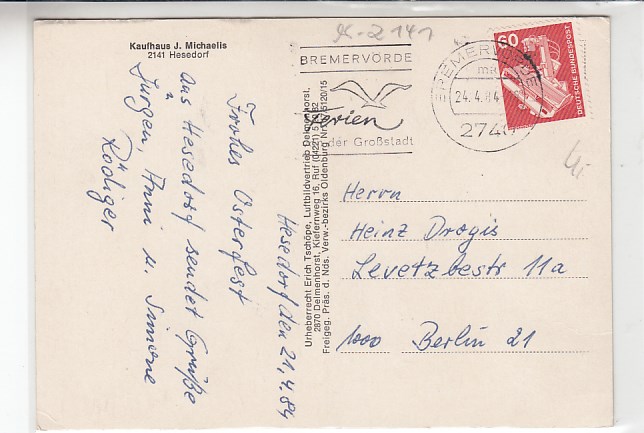 Kaufhaus J. Michaelis
2141 Hesedorf
Hesedorf den 21.4.84
Frohes Osterfest
aus Hesedorf sendet Grüße
Jürgen Anni u. Simone
Rödiger
Urheberrecht Erich Tschöpe, Luftbildvertrieb Delmenhorst,
2870 Delmenhorst, Kiefernweg 16, Ruf (04221)
Freigeg. Präs. d. Nds. Verw.-bezirks Oldenburg Nr. 5120/15
2141
BREMERVÖRDE
Ferien
der Großstadt
BREMERVÖRDE
24.4.84
274
60
DEUTSCHE BUNDESPOST
Herrn
Heinz Drogis
Levetzowstr 11a
1000 Berlin 21